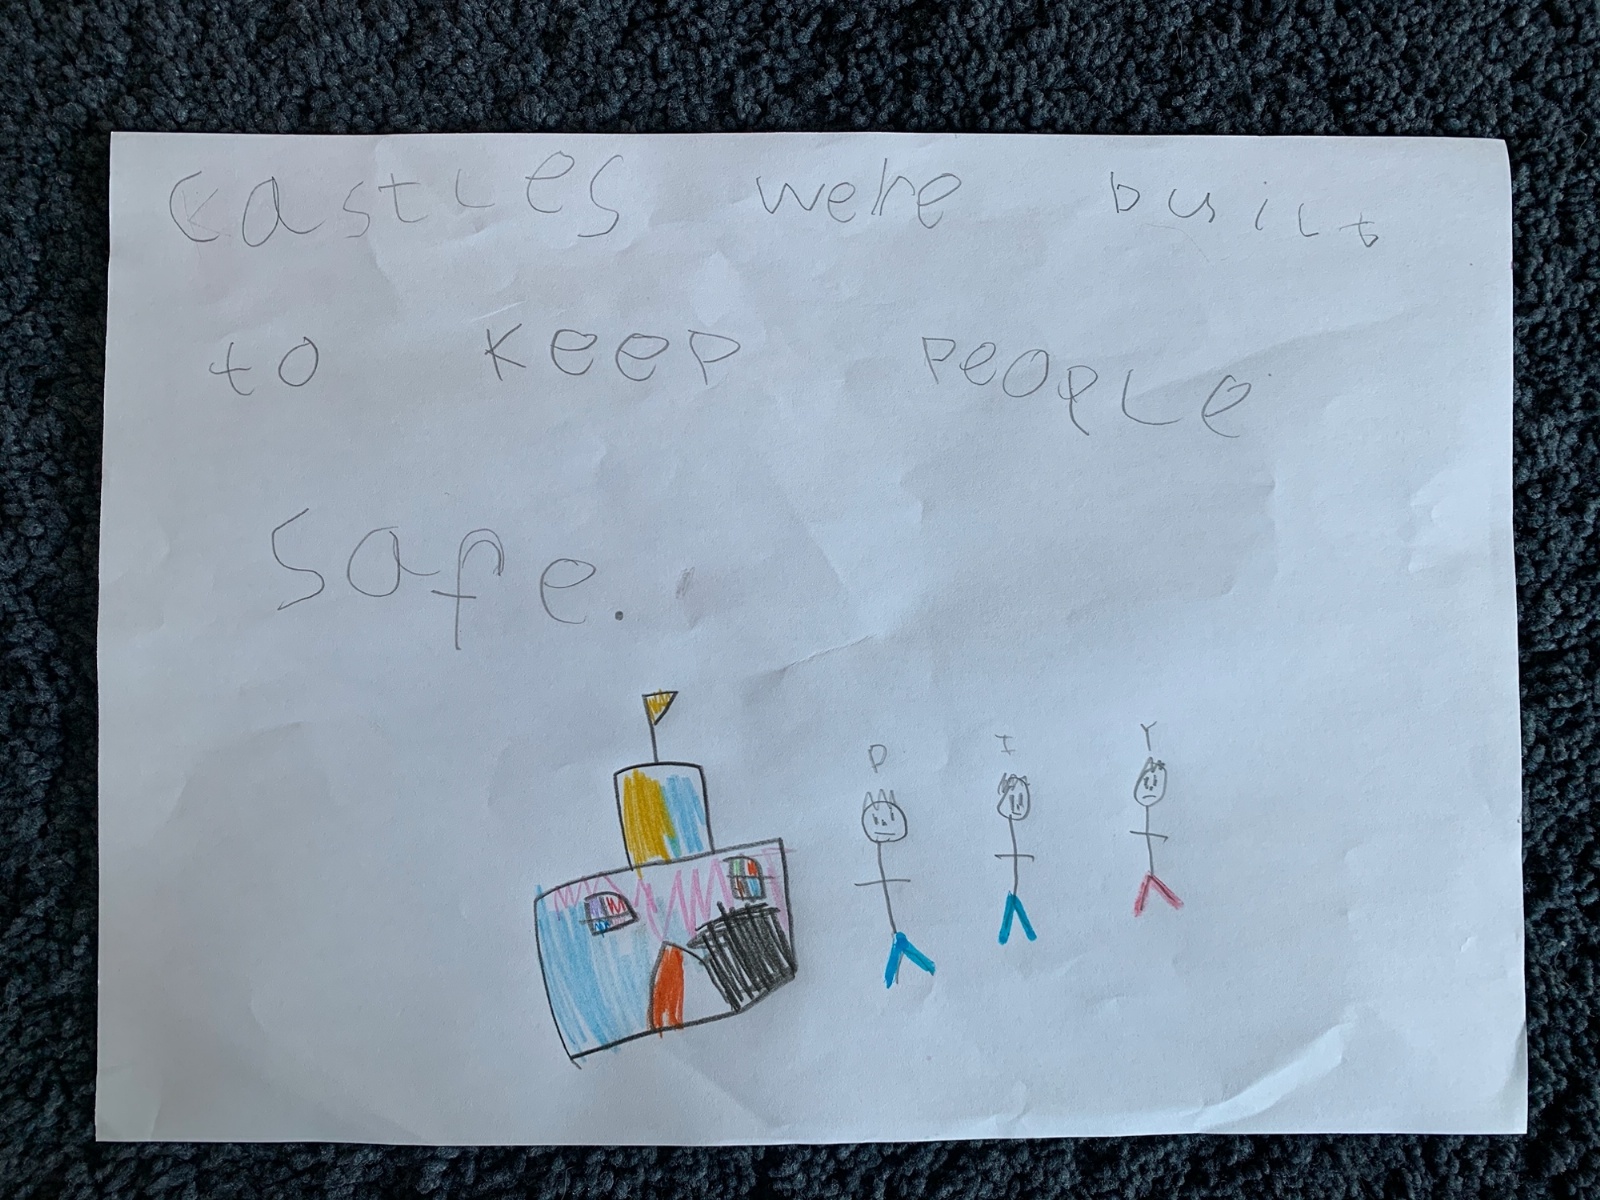 castles were built
to keep people
safe.
P I Y